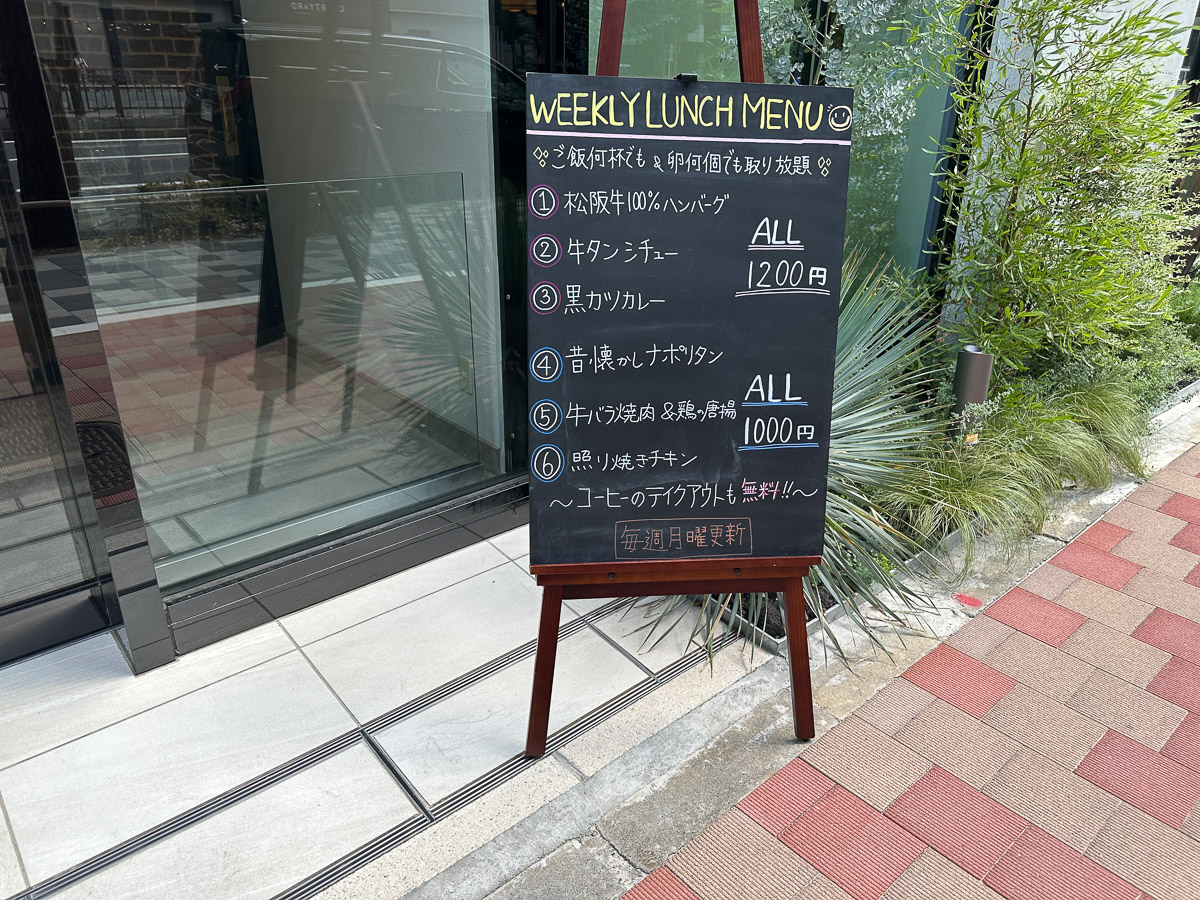 WEEKLY LUNCH MENU
ご飯何杯でも & 卵何個でも取り放題
① 松阪牛100%ハンバーグ
② 牛タンシチュー
③ 黒カツカレー
ALL
1200円
④ 昔懐かしナポリタン
⑤ 牛バラ焼肉&鶏の唐揚
⑥ 照り焼きチキン
ALL
1000円
〜コーヒーのテイクアウトも無料!!〜
毎週月曜更新